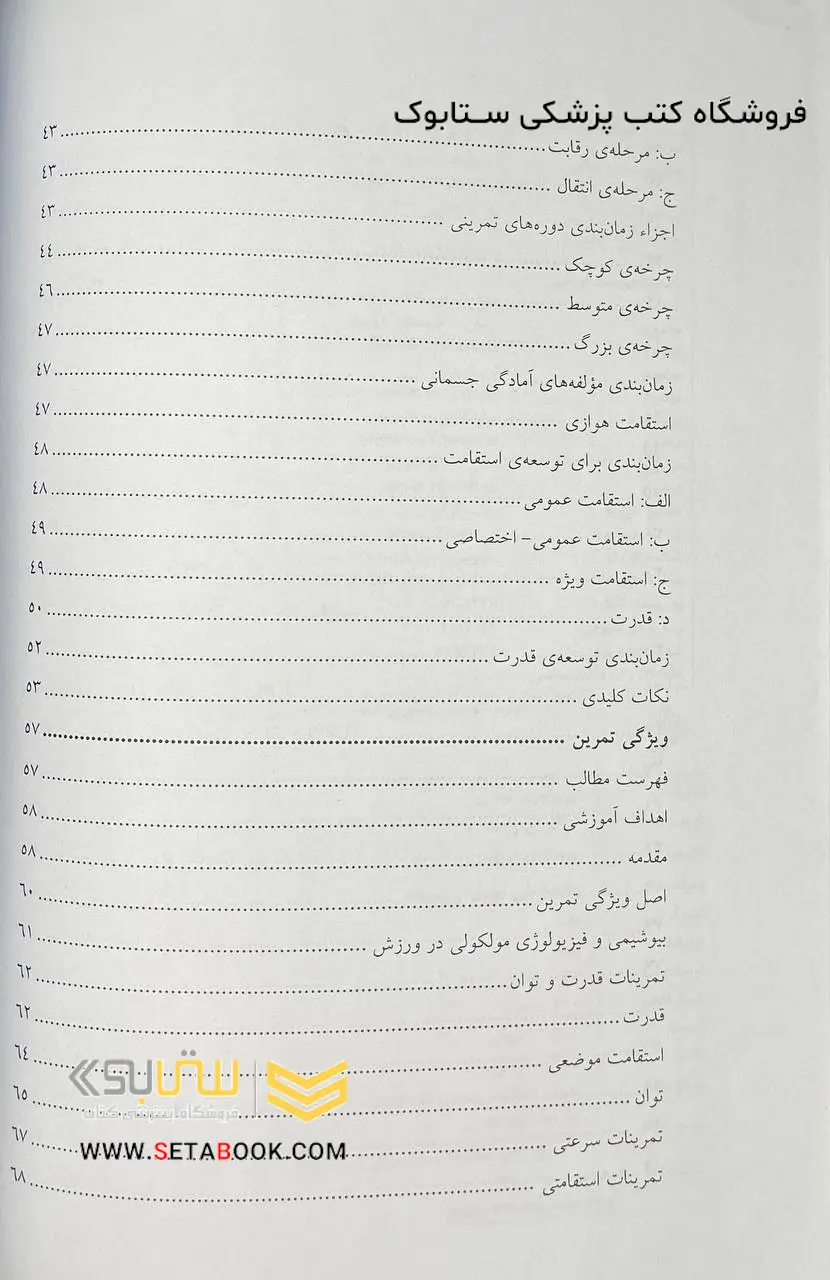 فروشگاه کتب پزشکی ستابوک
ب: مرحله‌ی رقابت ........ ٤٣
ج: مرحله‌ی انتقال ........ ٤٣
اجزاء زمان‌بندی دوره‌های تمرینی ........ ٤٣
چرخه‌ی کوچک ........ ٤٤
چرخه‌ی متوسط ........ ٤٦
چرخه‌ی بزرگ ........ ٤٧
زمان‌بندی مؤلفه‌های آمادگی جسمانی ........ ٤٧
استقامت هوازی ........ ٤٧
زمان‌بندی برای توسعه‌ی استقامت ........ ٤٨
الف: استقامت عمومی ........ ٤٨
ب: استقامت عمومی- اختصاصی ........ ٤٩
ج: استقامت ویژه ........ ٤٩
د: قدرت ........ ٥٠
زمان‌بندی توسعه‌ی قدرت ........ ٥٢
نکات کلیدی ........ ٥٣
ویژگی تمرین ........ ٥٧
فهرست مطالب ........ ٥٧
اهداف آموزشی ........ ٥٨
مقدمه ........ ٥٨
اصل ویژگی تمرین ........ ٦٠
بیوشیمی و فیزیولوژی مولکولی در ورزش ........ ٦١
تمرینات قدرت و توان ........ ٦٢
قدرت ........ ٦٢
استقامت موضعی ........ ٦٤
توان ........ ٦٥
تمرینات سرعتی ........ ٦٧
تمرینات استقامتی ........ ٦٨
ستابوک
فروشگاه اینترنتی کتاب
WWW.SETABOOK.COM